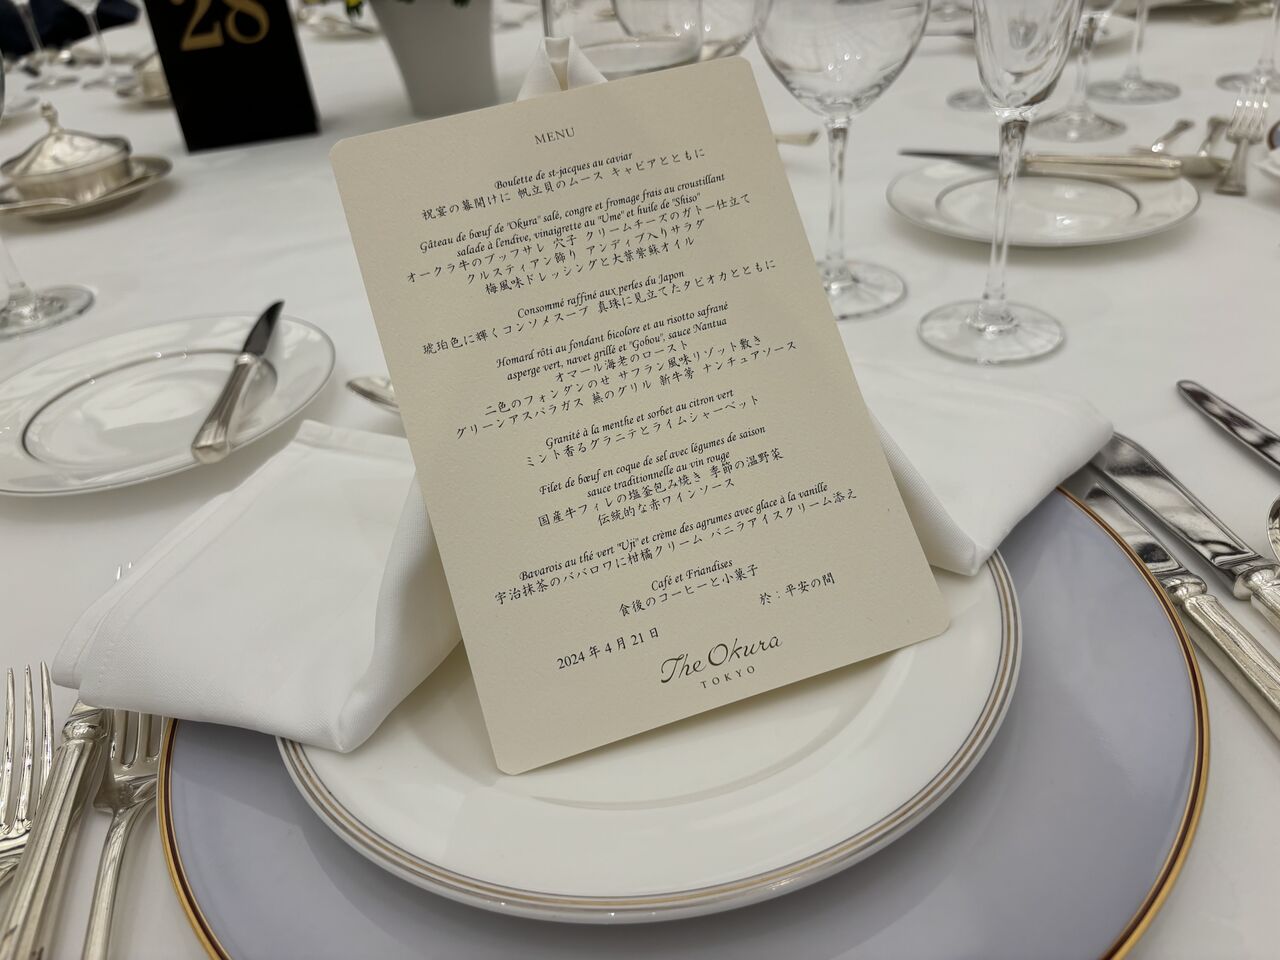 28
MENU
Boulette de st-jacques au caviar
祝宴の幕開けに 帆立貝のムース キャビアとともに
Gâteau de bœuf de "Okura" salé, congre et fromage frais au croustillant
salade à l'endive, vinaigrette au "Ume" et huile de "Shiso"
オークラ牛のブッフサレ 穴子 クリームチーズのガトー仕立て
クルスティアン飾り アンディブ入りサラダ
梅風味ドレッシングと大葉紫蘇オイル
Consommé raffiné aux perles du Japon
琥珀色に輝くコンソメスープ 真珠に見立てたタピオカとともに
Homard rôti au fondant bicolore et au risotto safrané
asperge vert, navet grillé et "Gobou", sauce Nantua
オマール海老のロースト
二色のフォンダンのせ サフラン風味リゾット敷き
グリーンアスパラガス 蕪のグリル 新牛蒡 ナンチュアソース
Granité à la menthe et sorbet au citron vert
ミント香るグラニテとライムシャーベット
Filet de bœuf en coque de sel avec légumes de saison
sauce traditionnelle au vin rouge
国産牛フィレの塩釜包み焼き 季節の温野菜
伝統的な赤ワインソース
Bavarois au thé vert "Uji" et crème des agrumes avec glace à la vanille
宇治抹茶のババロワに柑橘クリーム バニラアイスクリーム添え
Café et Friandises
食後のコーヒーと小菓子
2024年4月21日 於：平安の間
The Okura
TOKYO